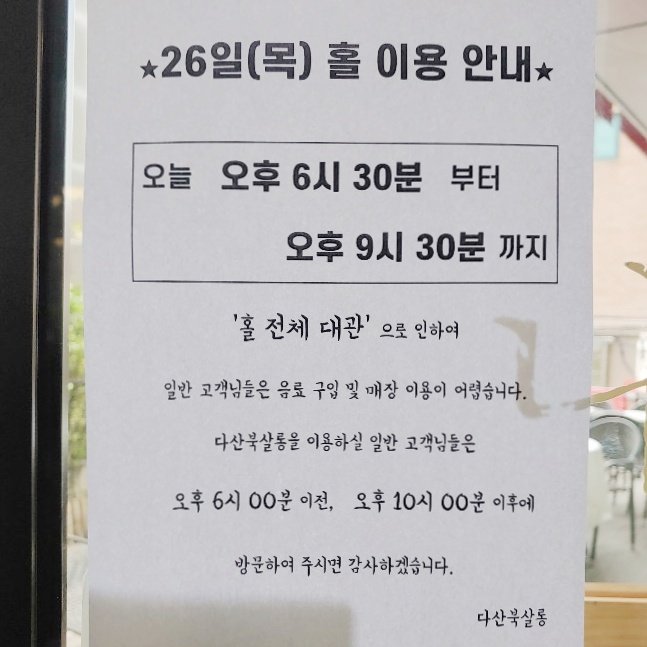 ★26일(목) 홀 이용 안내★
오늘 오후 6시 30분 부터
오후 9시 30분 까지
'홀 전체 대관' 으로 인하여
일반 고객님들은 음료 구입 및 매장 이용이 어렵습니다.
다산북살롱을 이용하실 일반 고객님들은
오후 6시 00분 이전, 오후 10시 00분 이후에
방문하여 주시면 감사하겠습니다.
다산북살롱